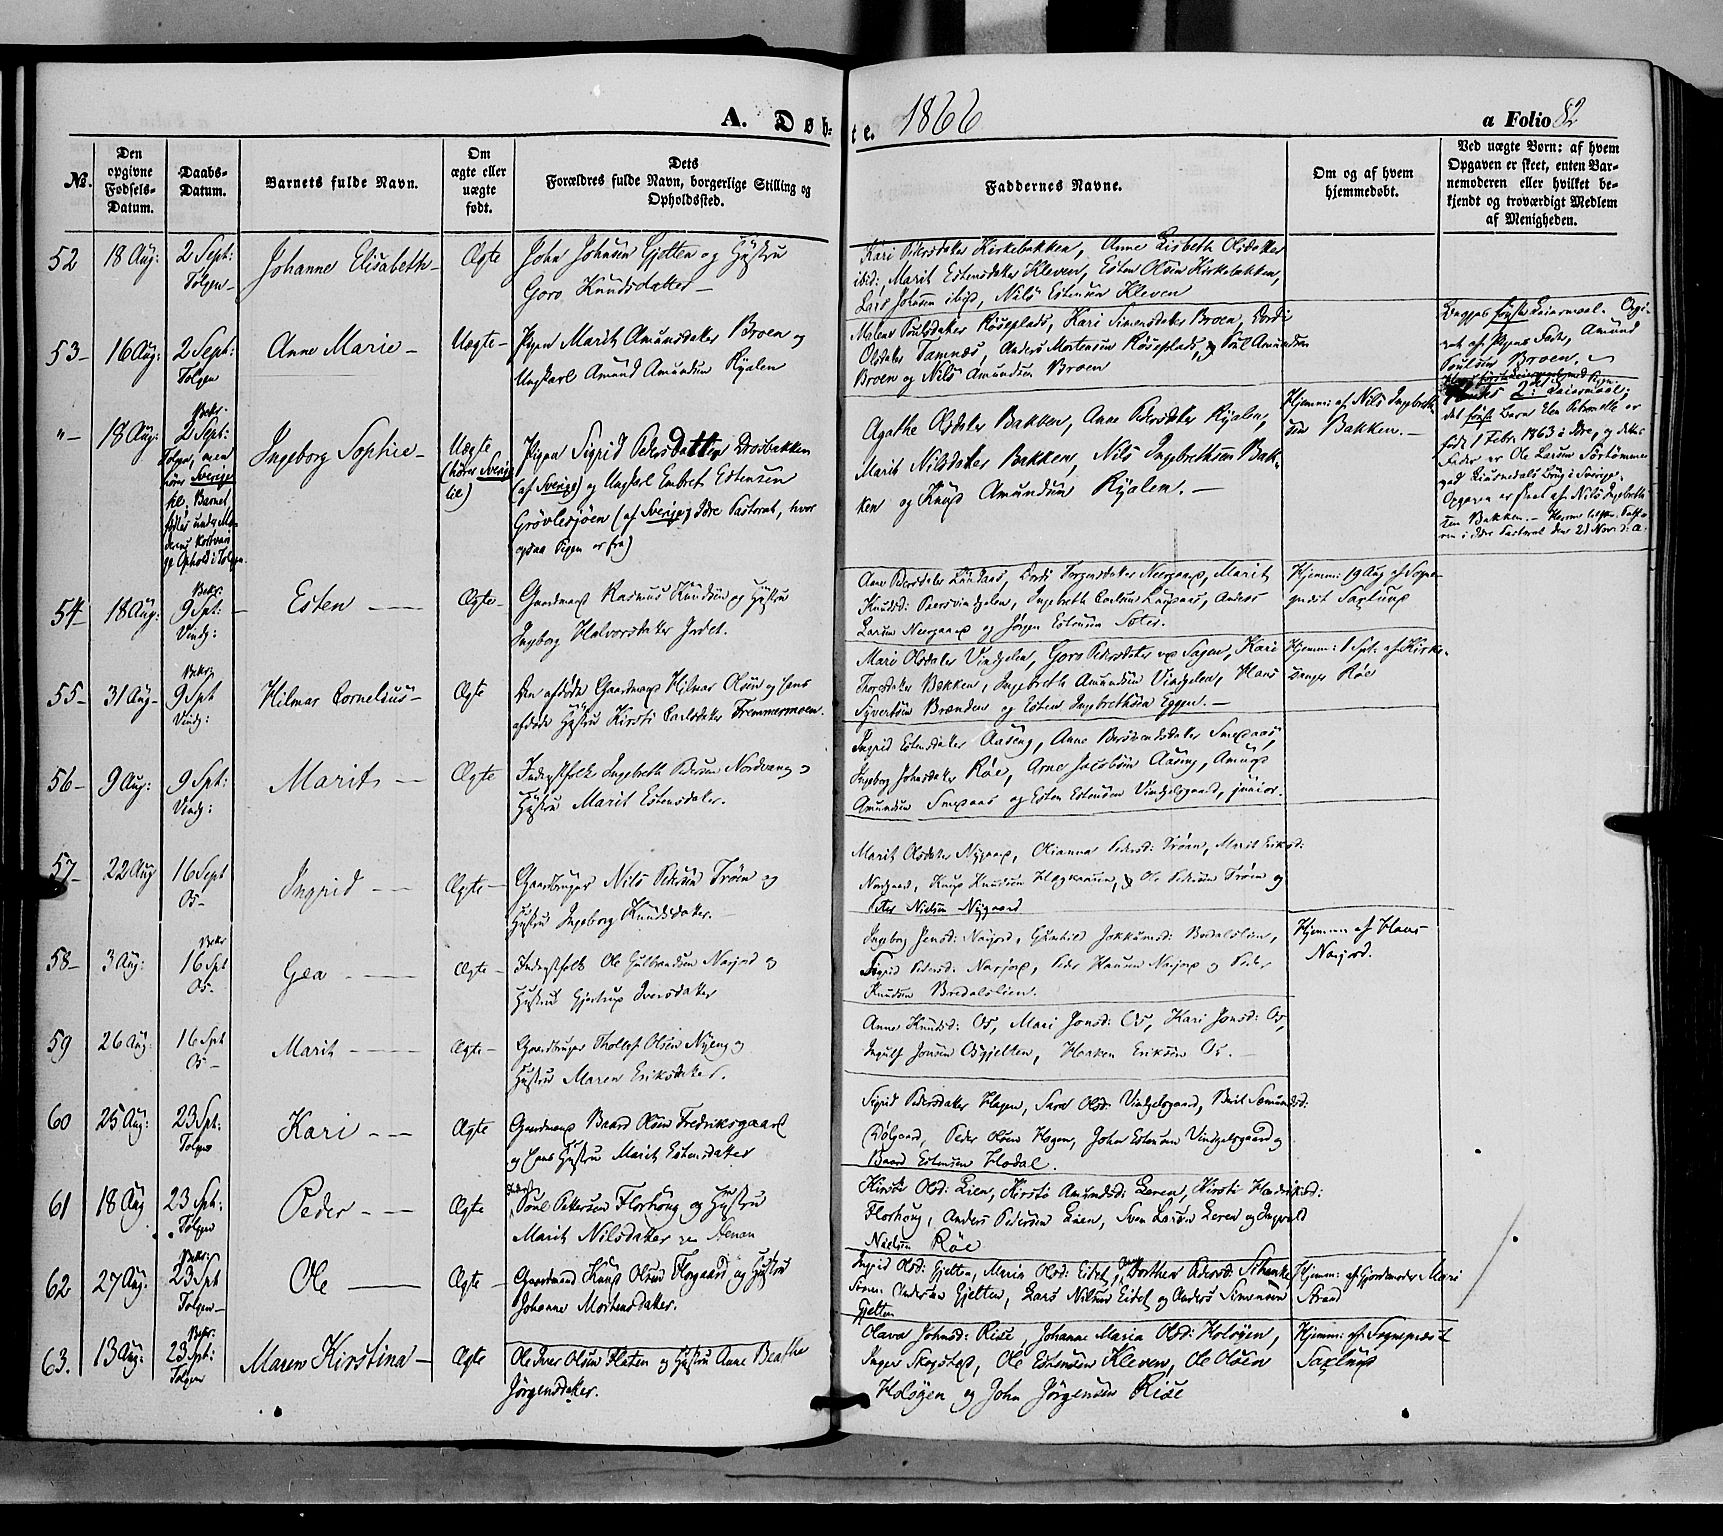 A. Døb-
te. 1866
a Folio 82
No.
Den opgivne Fødsels-Datum.
Daabs-Datum.
Barnets fulde Navn.
Om ægte eller uægte født.
Dets Forældres fulde Navn, borgerlige Stilling og Opholdssted.
Faddernes Navne.
Om og af hvem hjemmedøbt.
Ved uægte Børn: af hvem Opgaven er skeet, enten Barnemoderen eller hvilket bekjendt og troværdigt Medlem af Menigheden.
52
18 Aug:
2 Sept:
Tolgen
Johanne Elisabeth
Ægte
John Johnsen Gjelten og Hustru
Goro Knudsdatter
Kari Pedersdatter Kirkebakken, Anne Lisbeth Olsdatter
ibid: Marit Estensdatter Kleven, Esten Olsen Kirkebakken,
Lars Johnsen ibid, Nils Estensen Kleven
53
16 Aug:
2 Sept:
Tolgen
Anne Marie
Uægte
Pigen Marit Amundsdatter Broen og
Ungkarl Amund Amundsen Ryalen
Malene Poulsdatter Røseplads, Kari Simensdatter Broen, Dordi
Olsdatter Tamnæs, Anders Mortensen Røseplads, Poul Amundsen
Broen og Nils Amundsen Broen
Begges første Leiermaal. Opgi-
vet af Pigens Fader, Amund
Poulsen Broen
"
18 Aug:
Bekr:
2 Sept:
Tolgen, men
hører Sverige
til, Barnet
Ingeborg Sophie
Uægte
(hører Sverige
til)
Pigen Sigrid Pedersdatter
(af Sverige) og Ungkarl Embret Estensen
Grøvlesjøen (af Sverige) Idre Pastorat, hvor
ogsaa Pigen er fra)
Agathe Olsdatter Bakken, Anne Pedersdatter Ryalen,
Marit Nilsdatter Bakken, Nils Ingebrethsen Bak-
ken og Knud Amundsen Ryalen.
Hjemm: af Nils Ingebreth-
sen Bakken.
2: Leiermaal;
det første Barn
født 1 Febr. 1863 i Idre, og dettes
Fader er Ole Larsen
Opgaven er skeet af Nils Ingebreth-
sen Bakken.
54
18 Aug:
Bekr:
9 Spt:
Vindg:
Esten
Ægte
Gaardmand Rasmus Knudsen og Hustru
Ingeborg Halvorsdatter Jordet.
Hjemm: 19 Aug af Sogne-
præst Saxlund
55
31 Aug
Bekr:
9 Spt
Vindg:
Hilmar Cornelius
Ægte
Den afdøde Gaardmand Hilmar Olsen og hans
afdøde Hustru Kirsti Carlsdatter Fremmermoen.
Mari Olsdatter Vindgelen, Goro Pedersdatter Sagen, Kari
Thoresdatter Bakken, Ingebreth Amundsen Vindgelen, Hans
Syvertsen Brænden og Esten Ingebrethsen Eggen.
Hjemm: 1 Spt: af Kirke-
sanger Røe
56
9 Aug:
9 Spt:
Vindg:
Marit
Ægte
Inderstfolk Ingebreth Pedersen Nordvang og
Hustru Marit Estensdatter.
Ingrid Estensdatter Aaseng, Anne
Ingeborg Johnsdatter Røe, Arne Jacobsen Aaseng, Amund
Amundsen og Esten Estensen Vindgelsgaard, junior.
57
22 Aug
16 Sept
Os
Ingrid
Ægte
Gaardbruger Nils Pedersen Trøen og
Hustru Ingeborg Knudsdatter.
Marit Olsdatter Nygaard, Olianna Pedersd: Trøen, Marit Eriksd:
Nordgaard, Knud Knudsen, Ole Pedersen Trøen og
Peter Nielsen Nygaard
58
3 Aug:
Bekr
16 Spt
Os
Gea
Ægte
Inderstfolk Ole Gulbrandsen Narjord og
Hustru Gjertrud Iversdatter
Ingeborg Jensd: Narjord, Gunhild Jokkumsd: Bredalslien,
Sigrid Pedersd: Narjord, Peder Hansen Narjord og Peder
Knudsen Bredalslien.
Hjemm: af Hans
Narjord.
59
26 Aug:
16 Spt
Os
Marit
Ægte
Gaardbruger Thollef Olsen Nyeng og
Hustru Maren Eriksdatter.
Anne Knudsd: Os, Mari Jonsd: Os, Kari Jonsd: Os,
Ingulf Jonsen Osgjelten, Haaken Eriksen Os.
60
25 Aug:
23 Spt:
Tolgen
Kari
Ægte
Gaardmand Baard Olsen Fredriksgaard
og hans Hustru Marit Estensdatter
Sigrid Pedersdatter Hagen, Sara Olsd: Vindgelsgaard, Berit
Peder Olsen Hagen, John Estensen Vindgelsgaard og
Baard Estensen Hodal.
61
18 Aug
23 Spt:
Tolgen
Peder
Ægte
Poul Pettersen Florhoug og Hustru
Marit Nilsdatter
Kirsti Olsd: Lien, Kirsti Amundsd: Leren, Kirsti
Florhoug, Anders Pedersen Lien, Sven Larsen Leren og Ingvald
Nielsen Røe
62
27 Aug:
Bekr:
23 Spt
Tolgen
Ole
Ægte
Gaardmand Knud Olsen og Hustru
Johanne Mortensdatter.
Ingrid Olsd: Gjelten, Maria Olsd: Eidet, Dorthea Pedersd:
Simen Andersen Gjelten, Lars Nilsen Eidet og Anders Simensen
Gjelten
Hjemm: af Gjordemoder Mari
Strand
63.
13 Aug:
Bekr:
23 Spt:
Tolgen
Maren Kirstina
Ægte
Ole Iver Olsen Flaten og Hustru Anne Beathe
Jørgensdatter.
Olava Johnsd: Rise, Johanne Maria Olsd: Holøyen,
Inger Skogstad, Ole Estensen Kleven, Ole Olsen
Holøyen og John Jørgensen Rise
Hjemm: af Sognepræst
Saxlund